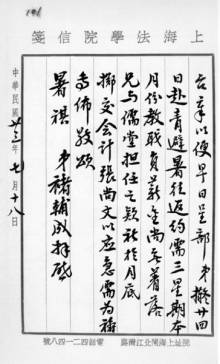 101
上海法學院信箋
台章以便早日呈部弟擬廿四
日赴青避暑往返約需三星期本
月份教職員薪金尚無着落
兄与儒堂担任之款祈於月底
擲交会計張尚文以應急需为禱
专佈敬颂
暑祺 弟褚輔成拜啟
中華民國廿三年七月十八日
院址上海閘北江灣路 電話四二一四八號